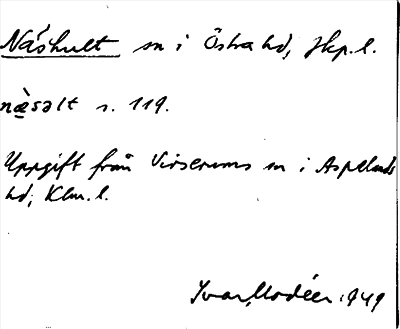 Näshult sn i Östra hd, Jkp. l.
næ̀səlt s. 119.
Uppgift från Virserums sn i Aspelands
hd, Klm. l.
Ivar Modéer 1949